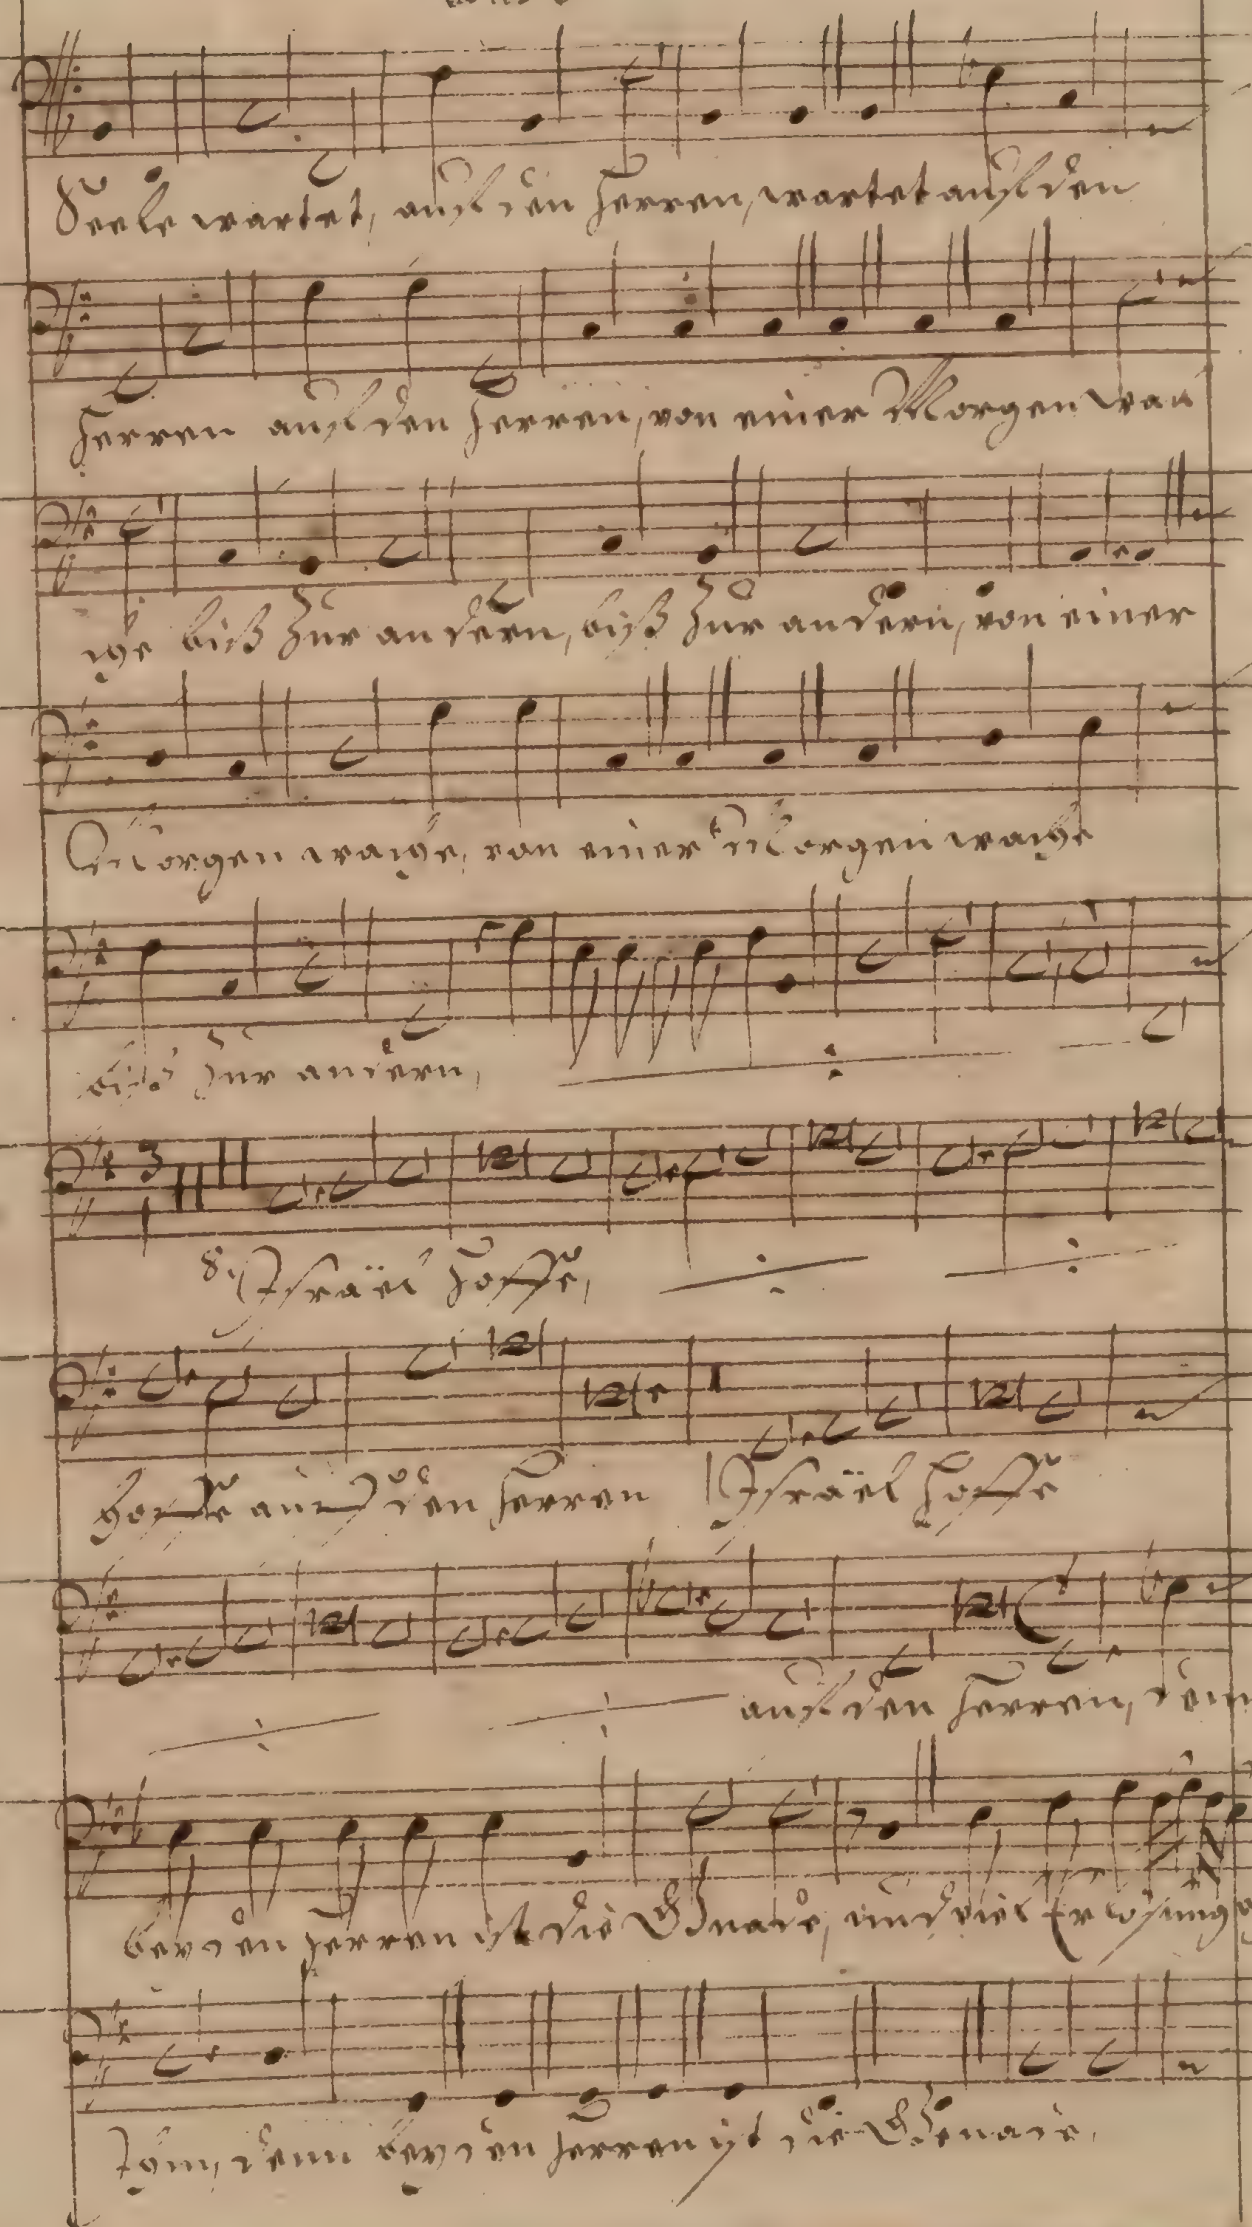 Seele wartet, auff den Herren, wartet auff den
Herren auff den Herren, von einer Morgen wach
3
ige biß zur andern, biß zur andern, von einer
Morgen wache, von einer Morgen wache
biß zur andern,
Israël hoffe,
hoffe auff den Herren Israël hoffe
auff den Herren, denn
bey den Herren ist die Gnade, und viel Erlösung
Ihm, denn bey den Herren ist die Genade,